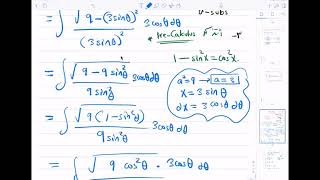 = ∫ √(9 - (3 sinθ)²) / (3 sinθ)² 3 cosθ dθ
u-subs
* Pre-Calculus
1 - sin²x = cos²x
= ∫ √(9 - 9 sin²θ) / 9 sin²θ 3 cosθ dθ
a² = 9 → a = 3
x = 3 sinθ
dx = 3 cosθ dθ
= ∫ √(9(1 - sin²θ)) / 9 sin²θ 3 cosθ dθ
= ∫ √(9 cos²θ) · 3 cosθ dθ